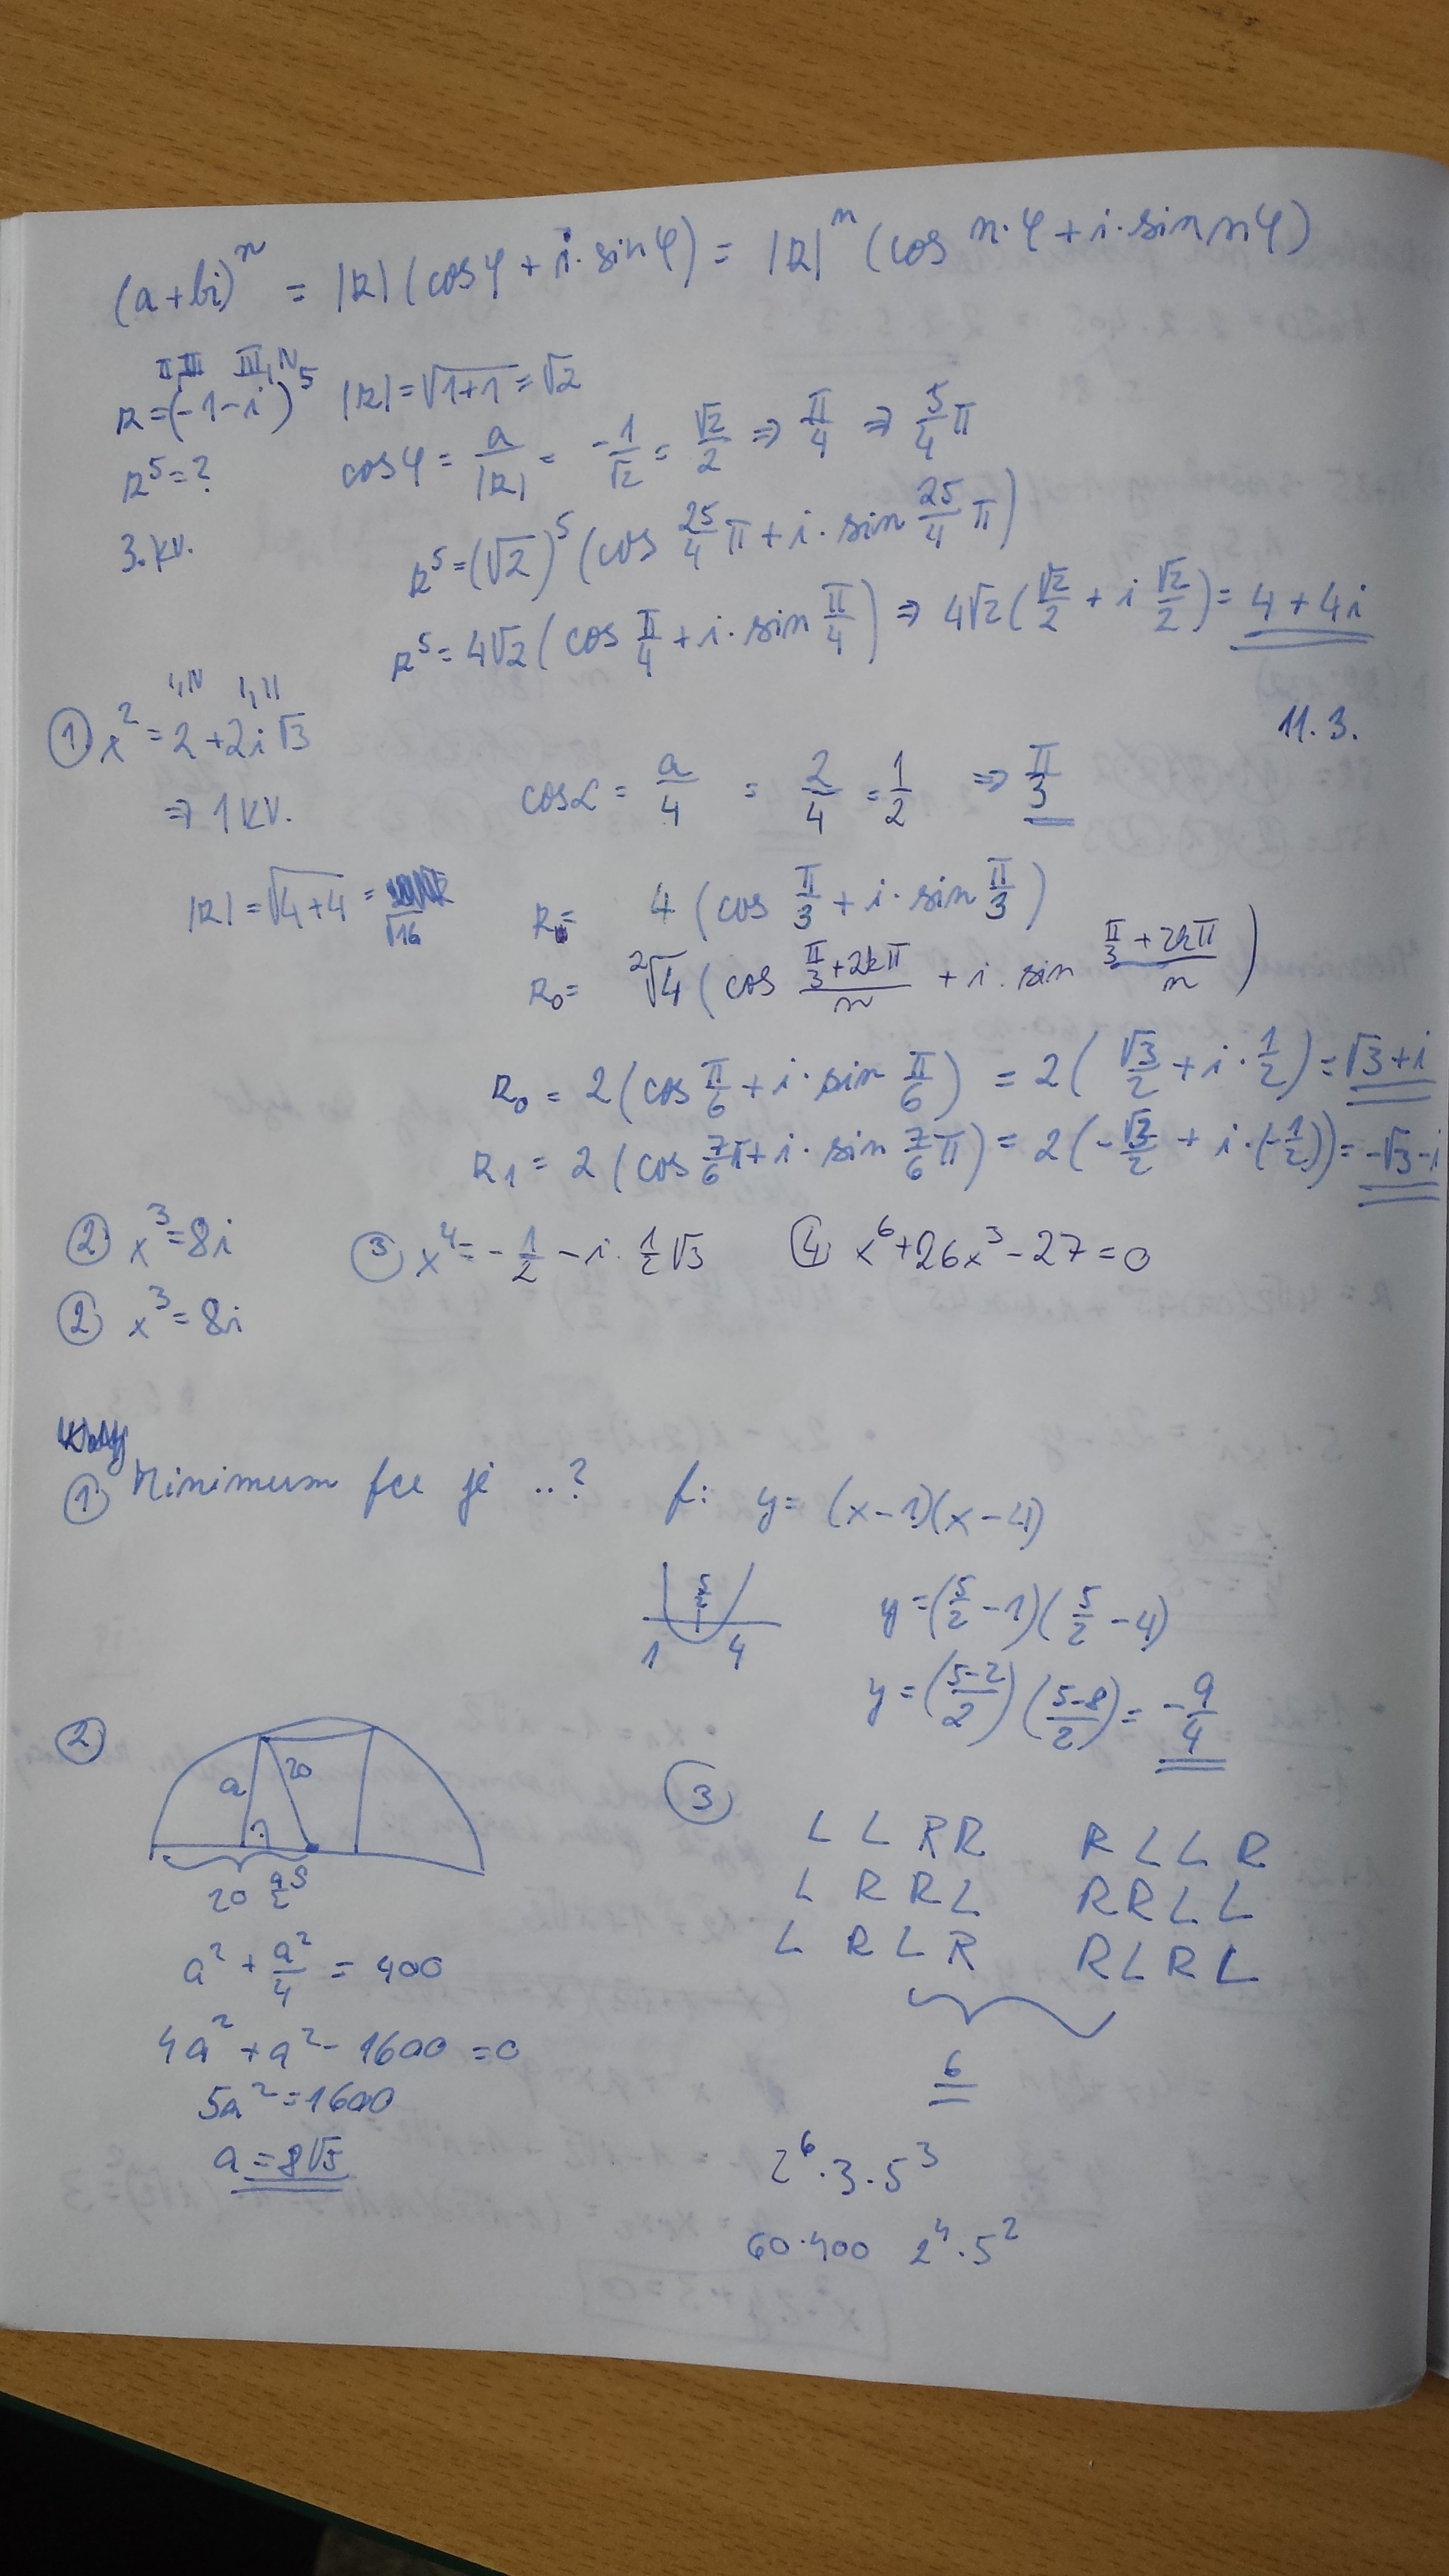 (a+bi)^n = |z| (cos φ + i · sin φ) = |z|^n (cos n·φ + i · sin nφ)
II,III III,IV
z = (-1-i)^5 |z| = √1+1 = √2
z^5 = ? cos φ = a/|z| = -1/√2 = √2/2 ⇒ π/4 ⇒ 5/4 π
3. kv. z^5 = (√2)^5 (cos 25/4 π + i · sin 25/4 π)
z^5 = 4√2 (cos π/4 + i · sin π/4) ⇒ 4√2 (√2/2 + i √2/2) = 4 + 4i
I,IV I,II
① x^2 = 2 + 2i√3 11.3.
⇒ 1 kv. cos α = a/4 = 2/4 = 1/2 ⇒ π/3
|z| = √4+4 = √16 z = 4 (cos π/3 + i · sin π/3)
z0 = ²√4 (cos (π/3+2kπ)/n + i · sin (π/3+2kπ)/n)
z0 = 2 (cos π/6 + i · sin π/6) = 2 (√3/2 + i · 1/2) = √3 + i
z1 = 2 (cos 7/6 π + i · sin 7/6 π) = 2 (-√3/2 + i · (-1/2)) = -√3 - i
② x^3 = 8i ③ x^4 = -1/2 - i · 1/2 √3 ④ x^6 + 26x^3 - 27 = 0
② x^3 = 8i
① Minimum fce je ..? f: y = (x-1)(x-4)
5/2
1 4
y = (5/2 - 1)(5/2 - 4)
y = ((5-2)/2)((5-8)/2) = -9/4
②
a 20
20 a/2 S
a^2 + a^2/4 = 400
4a^2 + a^2 - 1600 = 0
5a^2 = 1600
a = 8√5
③
L L R R R L L R
L R R L R R L L
L R L R R L R L
6
2^6 · 3 · 5^3
60·400 2^4 · 5^2